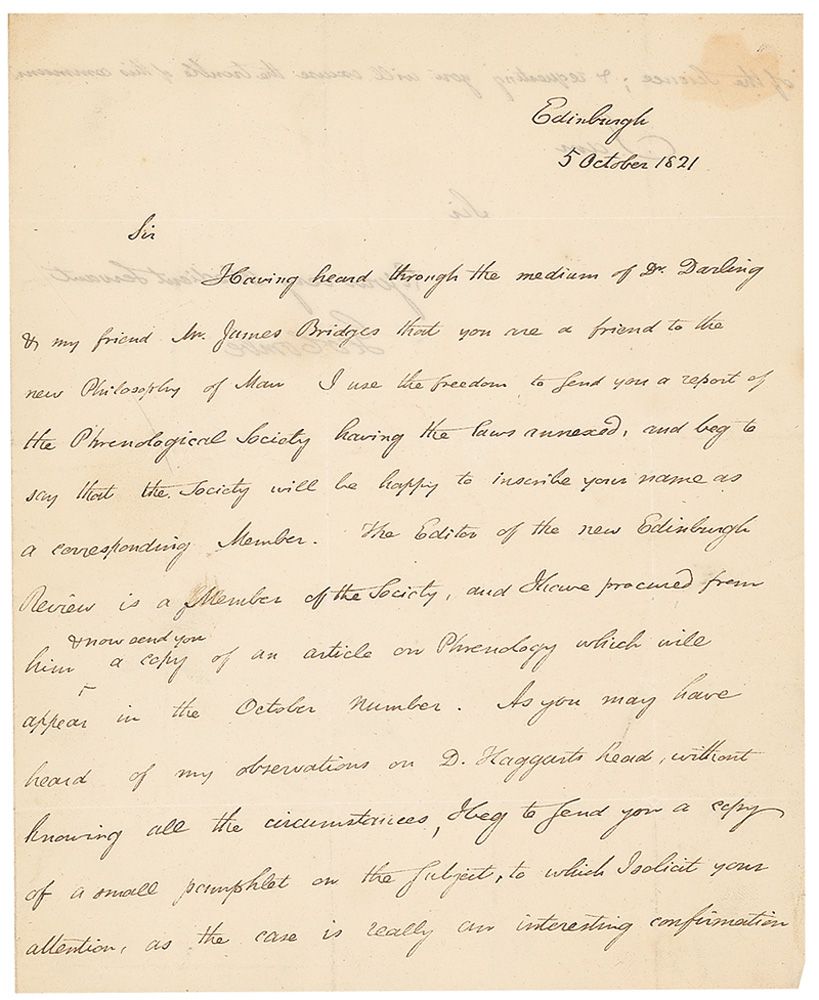 Edinburgh
5 October 1821
Sir
Having heard through the medium of Dr. Darling
& my friend Mr. James Bridges that you are a friend to the
new Philosophy of Man I use the freedom to send you a report of
the Phrenological Society having the laws annexed, and beg to
say that the Society will be happy to inscribe your name as
a corresponding Member. The Editor of the new Edinburgh
Review is a Member of the Society, and I have procured from
& now send you
him a copy of an article on Phrenology which will
appear in the October Number. As you may have
heard of my observations on D. Haggarts head, without
knowing all the circumstances, I beg to send you a copy
of a small pamphlet on the subject, to which I solicit your
attention, as the case is really an interesting confirmation